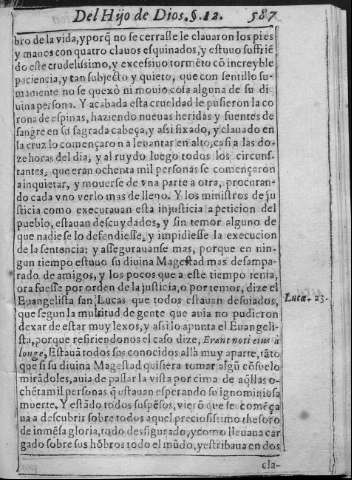 Del Hijo de Dios. §. 12. 587
bro de la vida, y porq̃ no se cerrasse le clauaron los pies
y manos con quatro clauos esquinados, y estuuo sufriẽ
do este crudelissimo, y excessiuo tormẽto cõ increyble
paciencia, y tan subjecto y quieto, que con sentillo su-
mamente no se quexò ni mouio cosa alguna de su di
uina persona. Y acabada esta crueldad le pusieron la co
rona de espinas, haziendo nueuas heridas y fuentes de
sangre en su sagrada cabeça, y assi fixado, y clauado en
la cruz lo començaron a leuantar en alto, casi a las do-
ze horas del dia, y al ruydo luego todos los circunf-
tantes, que eran ochenta mil personas se començaron
a inquietar, y mouerse de vna parte a otra, procuran-
do cada vno verlo mas de lleno. Y los ministros de ju
sticia como executauan esta injusticia a peticion del
pueblo, estauan descuydados, y sin temor alguno de
que nadie se lo defendiesse, y impidiesse la execucion
de la sentencia; y assegurauanse mas, porque en nin-
gun tiempo estuuo su diuina Magestad mas desampa-
rado de amigos, y los pocos que a este tiempo tenia,
ora fuesse por orden de la justicia, o por temor, dize el
Euangelista san Lucas que todos estauan desuiados,
que segun la multitud de gente que auia no pudieron
dexar de estar muy lexos, y assi lo apunta el Euangeli-
sta, porque refiriendo nos el caso dize, Erant noti eius à
longe, Estauã todos sus conocidos allà muy aparte, tãto
que si su diuina Magestad quisiera tomar algũ cõsuelo
mirãdoles, auia de passar la vista por cima de aq̃llas o-
chẽta mil personas q̃ estauan esperando su ignominiosa
muerte. Y estãdo todos suspẽsos, vierõ que se comẽça
ua a descubrir sobre todos aquel preciosissimo thesoro
de inmẽsa gloria, todo desfigurado, y como lleuaua car
gado sobre sus hõbros todo el mũdo, y estribaua en dos
cla-
Lucæ. 23.